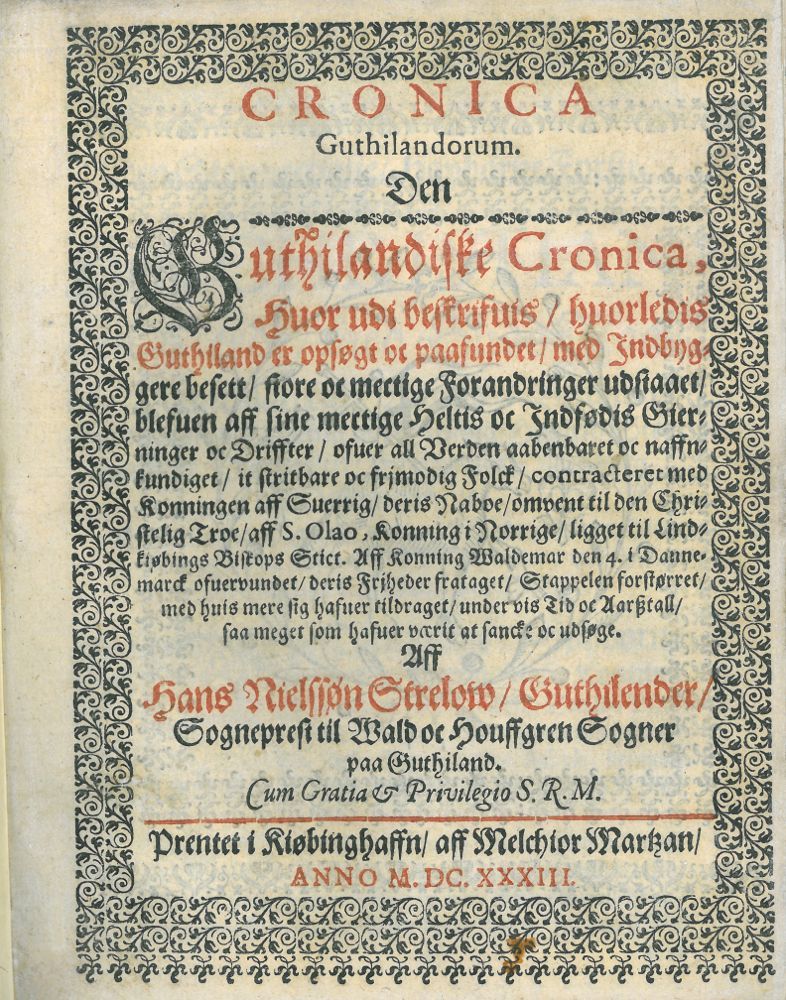 CRONICA
Guthilandorum.
Den
Guthilandiske Cronica,
Huor udi beskrifuis / huorledis
Guthiland er opsøgt oc paafundet / med Indbyg-
gere besett / store oc mectige Forandringer udstaaet /
blefuen aff sine mectige Heltis oc Indfødis Gier-
ninger oc Driffter / ofuer all Verden aabenbaret oc naffn-
kundiget / it stritbare oc frjmodig Folck / contracteret med
Konningen aff Suerrig / deris Naboe / omvent til den Chri-
stelig Troe / aff S. Olao, Konning i Norrige / ligget til Lind-
kiøbings Biskops Stict. Aff Konning Waldemar den 4. i Danne-
marck ofuervundet / deris Frjheder frataget / Stappelen forstørret /
med huis mere sig hafuer tildraget / under vis Tid oc Aarßtall /
saa meget som hafuer værit at sancke oc udsøge.
Aff
Hans Nielssøn Strelow / Guthilender /
Sogneprest til Wald oc Houffgren Sogner
paa Guthiland.
Cum Gratia & Privilegio S. R. M.
Prentet i Kiøbinghaffn / aff Melchior Martzan /
ANNO M. DC. XXXIII.